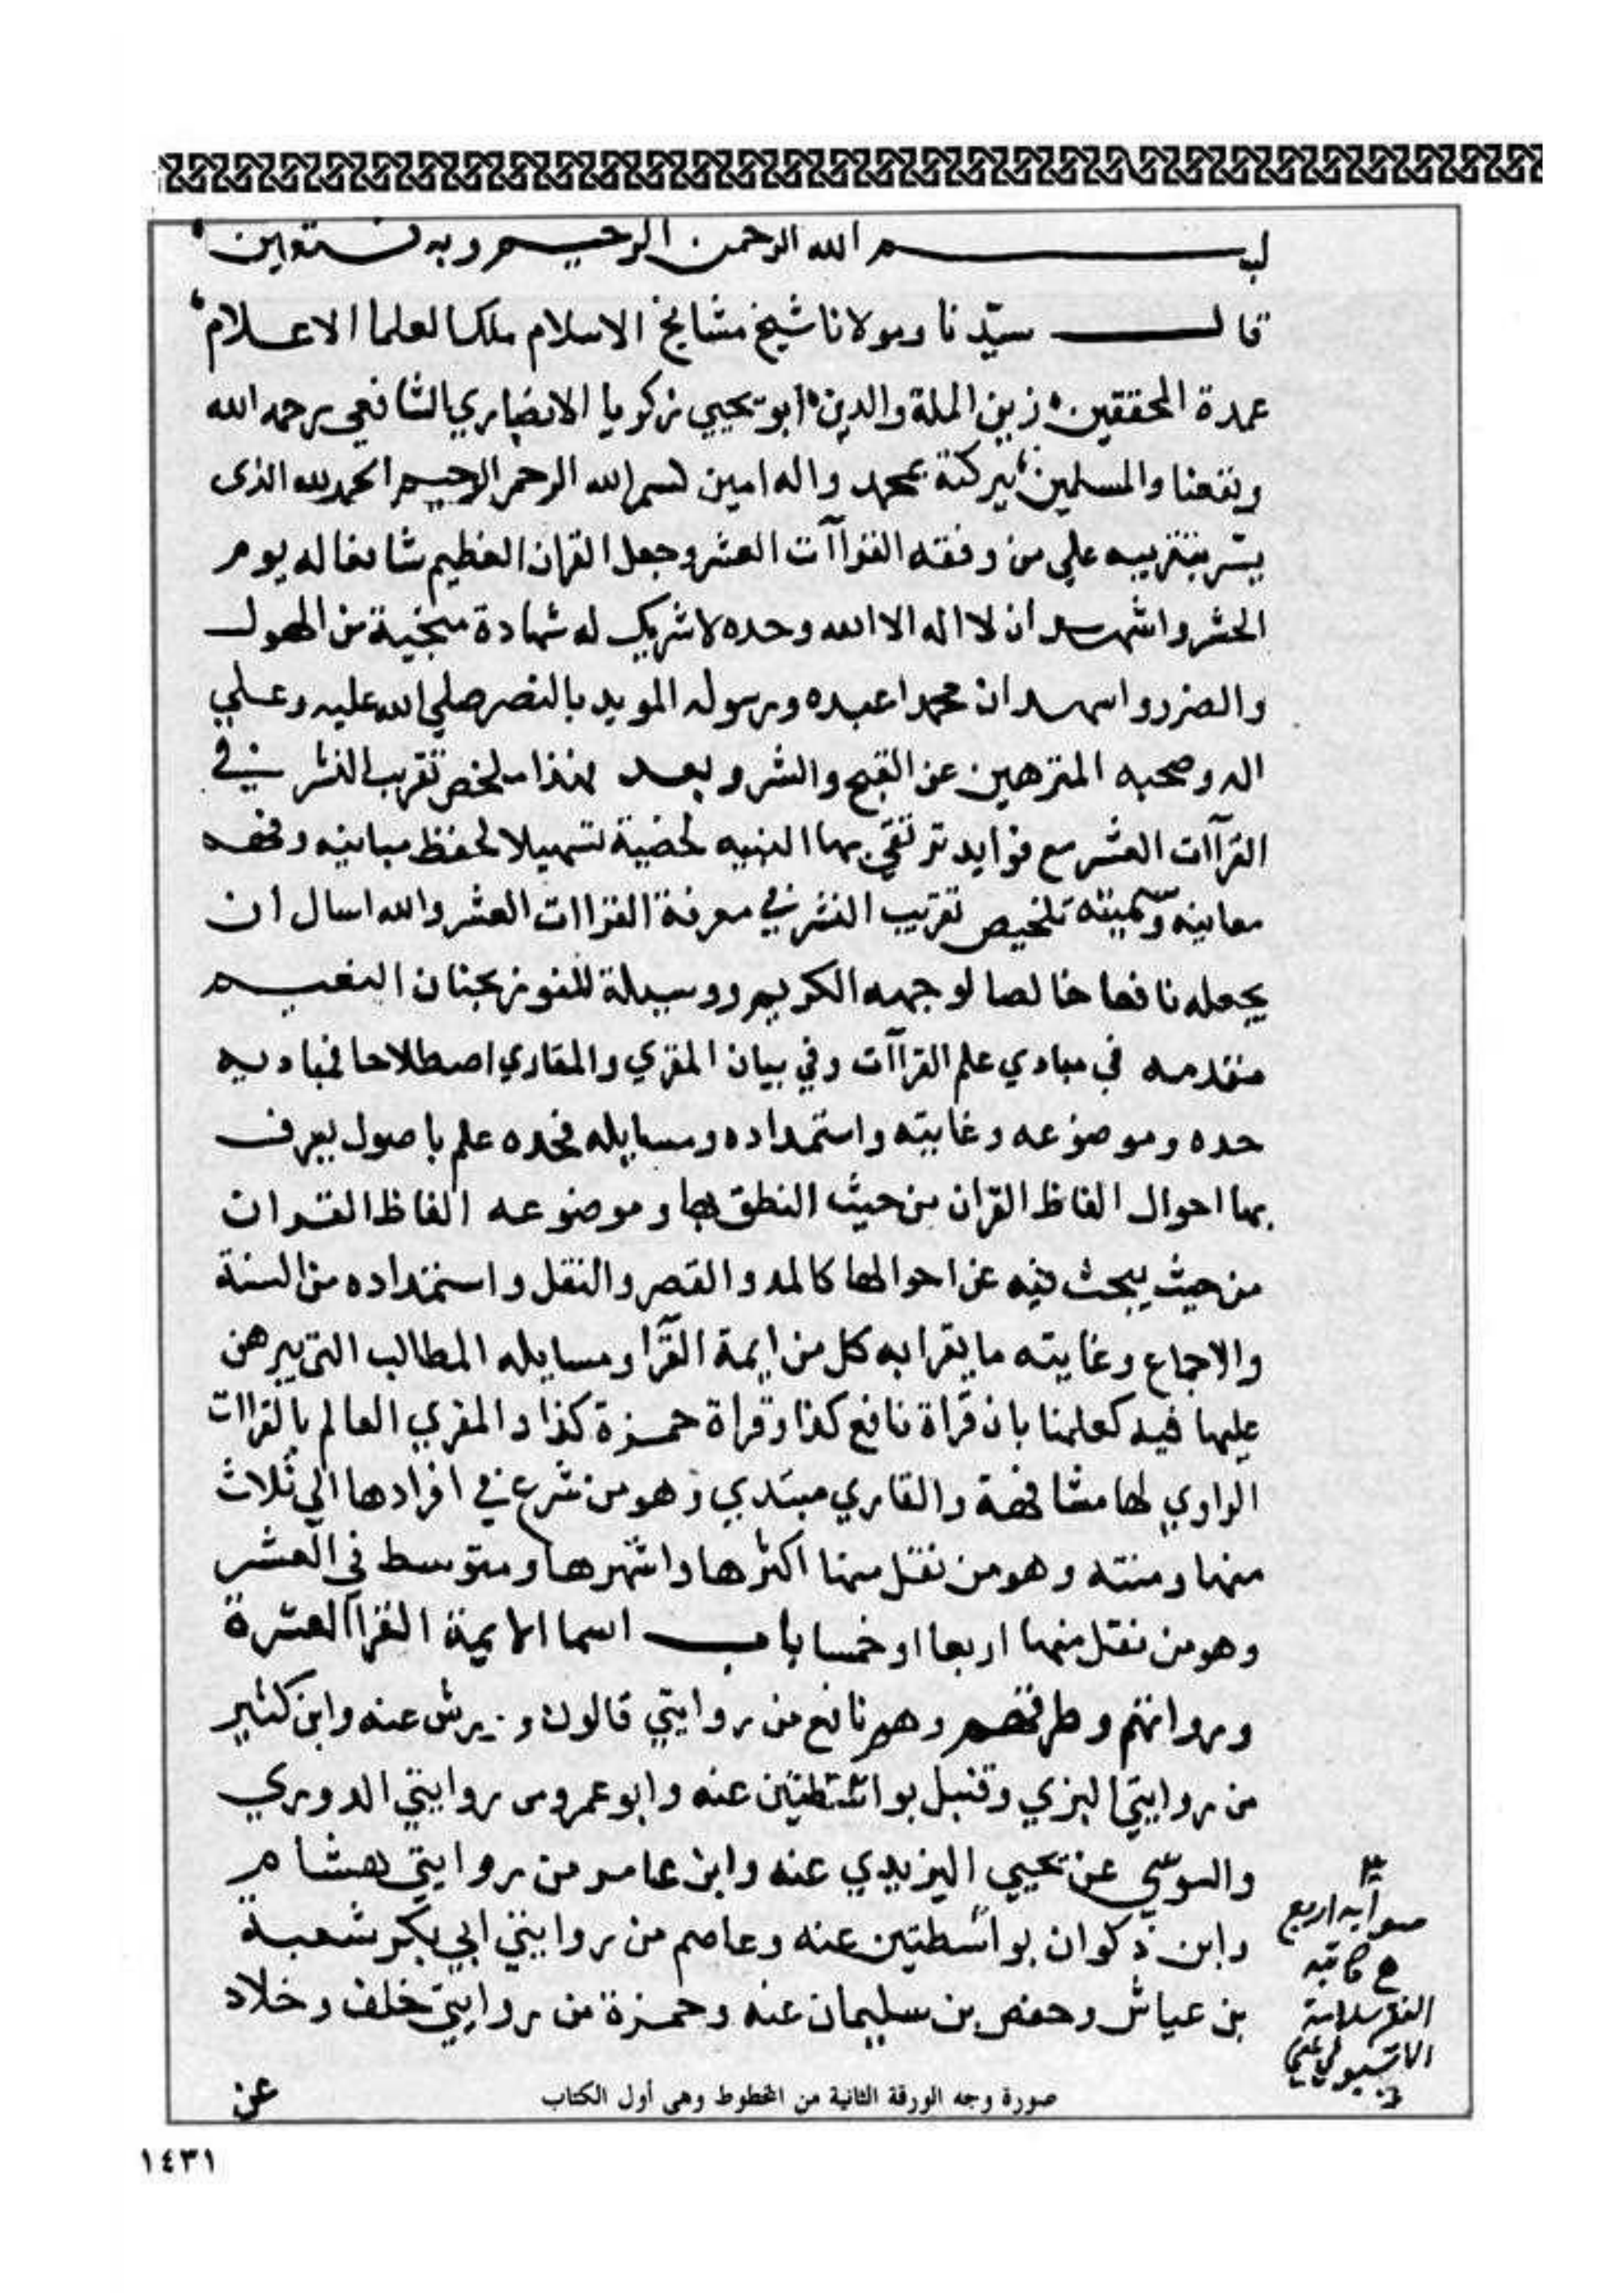 بسم الله الرحمن الرحيم وبه نستعين
قال سيّدنا ومولانا شيخ مشايخ الاسلام ملك العلما الاعلام
عمدة المحققين زين الملة والدين ابو يحيي زكريا الانصاري الشافعي رحمه الله
ونفعنا والمسلمين ببركته بمحمد واله امين بسم الله الرحمن الرحيم الحمد لله الذى
يسّر بتقريبه علي من وفقه القراآت العشر وجعل القران العظيم شافعا له يوم
الحشر واشهد ان لا اله الا الله وحده لا شريك له شهادة منجية من الهول
والضرر واشهد ان محمدا عبده ورسوله المويد بالنصر صلي الله عليه وعلي
اله وصحبه المنزهين عن القبح والشر وبعد فهذا ملخص تقريب النشر في
القراآت العشر مع فوايد ترتقي بها النبيه لخصته تسهيلا لحفظ مبانيه وفهم
معانيه وسميته تلخيص تقريب النشر في معرفة القراات العشر والله اسال ان
يجعله نافعا خالصا لوجهه الكريم ووسيلة للفوز بجنان النعيم
مقدمه في مبادي علم القراآت وفي بيان المقري والقاري اصطلاحا فمباديه
حده وموضوعه وغايته واستمداده ومسايله فحده علم باصول يعرف
بها احوال الفاظ القران من حيث النطق بها وموضوعه الفاظ القران
من حيث يبحث فيه عن احوالها كالمد والقصر والنقل واستمداده من السنة
والاجماع وغايته ما يقرا به كل من ايمة القرا ومسايله المطالب التي يبرهن
عليها فيه كعلمنا بان قراة نافع كذا وقراة حمزة كذا والمقري العالم بالقراات
الراوي لها مشافهة والقاري مبتدي وهو من شرع في افرادها الي ثلاث
منها ومنته وهو من نقل منها اكثرها واشهرها ومتوسط في العشر
وهو من نقل منها اربعا او خمسا باب اسما الايمة القرا العشرة
ورواتهم وطرقهم وهم نافع من روايتي قالون وورش عنه وابن كثير
من روايتي البزي وقنبل بواسطتين عنه وابو عمرو من روايتي الدوري
والسوسي عن يحيي اليزيدي عنه وابن عامر من روايتي هشام
وابن ذكوان بواسطتين عنه وعاصم من روايتي ابي بكر شعبة
بن عياش وحفص بن سليمان عنه وحمزة من روايتي خلف وخلاد
عن
صورة وجه الورقة الثانية من المخطوط وهى أول الكتاب
١٤٣١